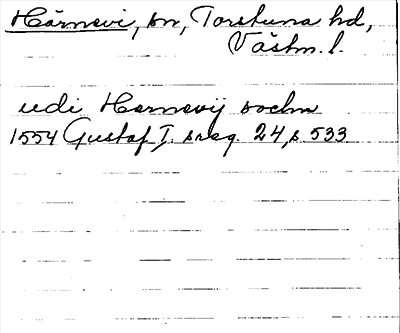 Härnevi, sn, Torstuna hd,
Västm. l.
udi Hernevij sochn
1554 Gustaf I. s reg. 24, s. 533